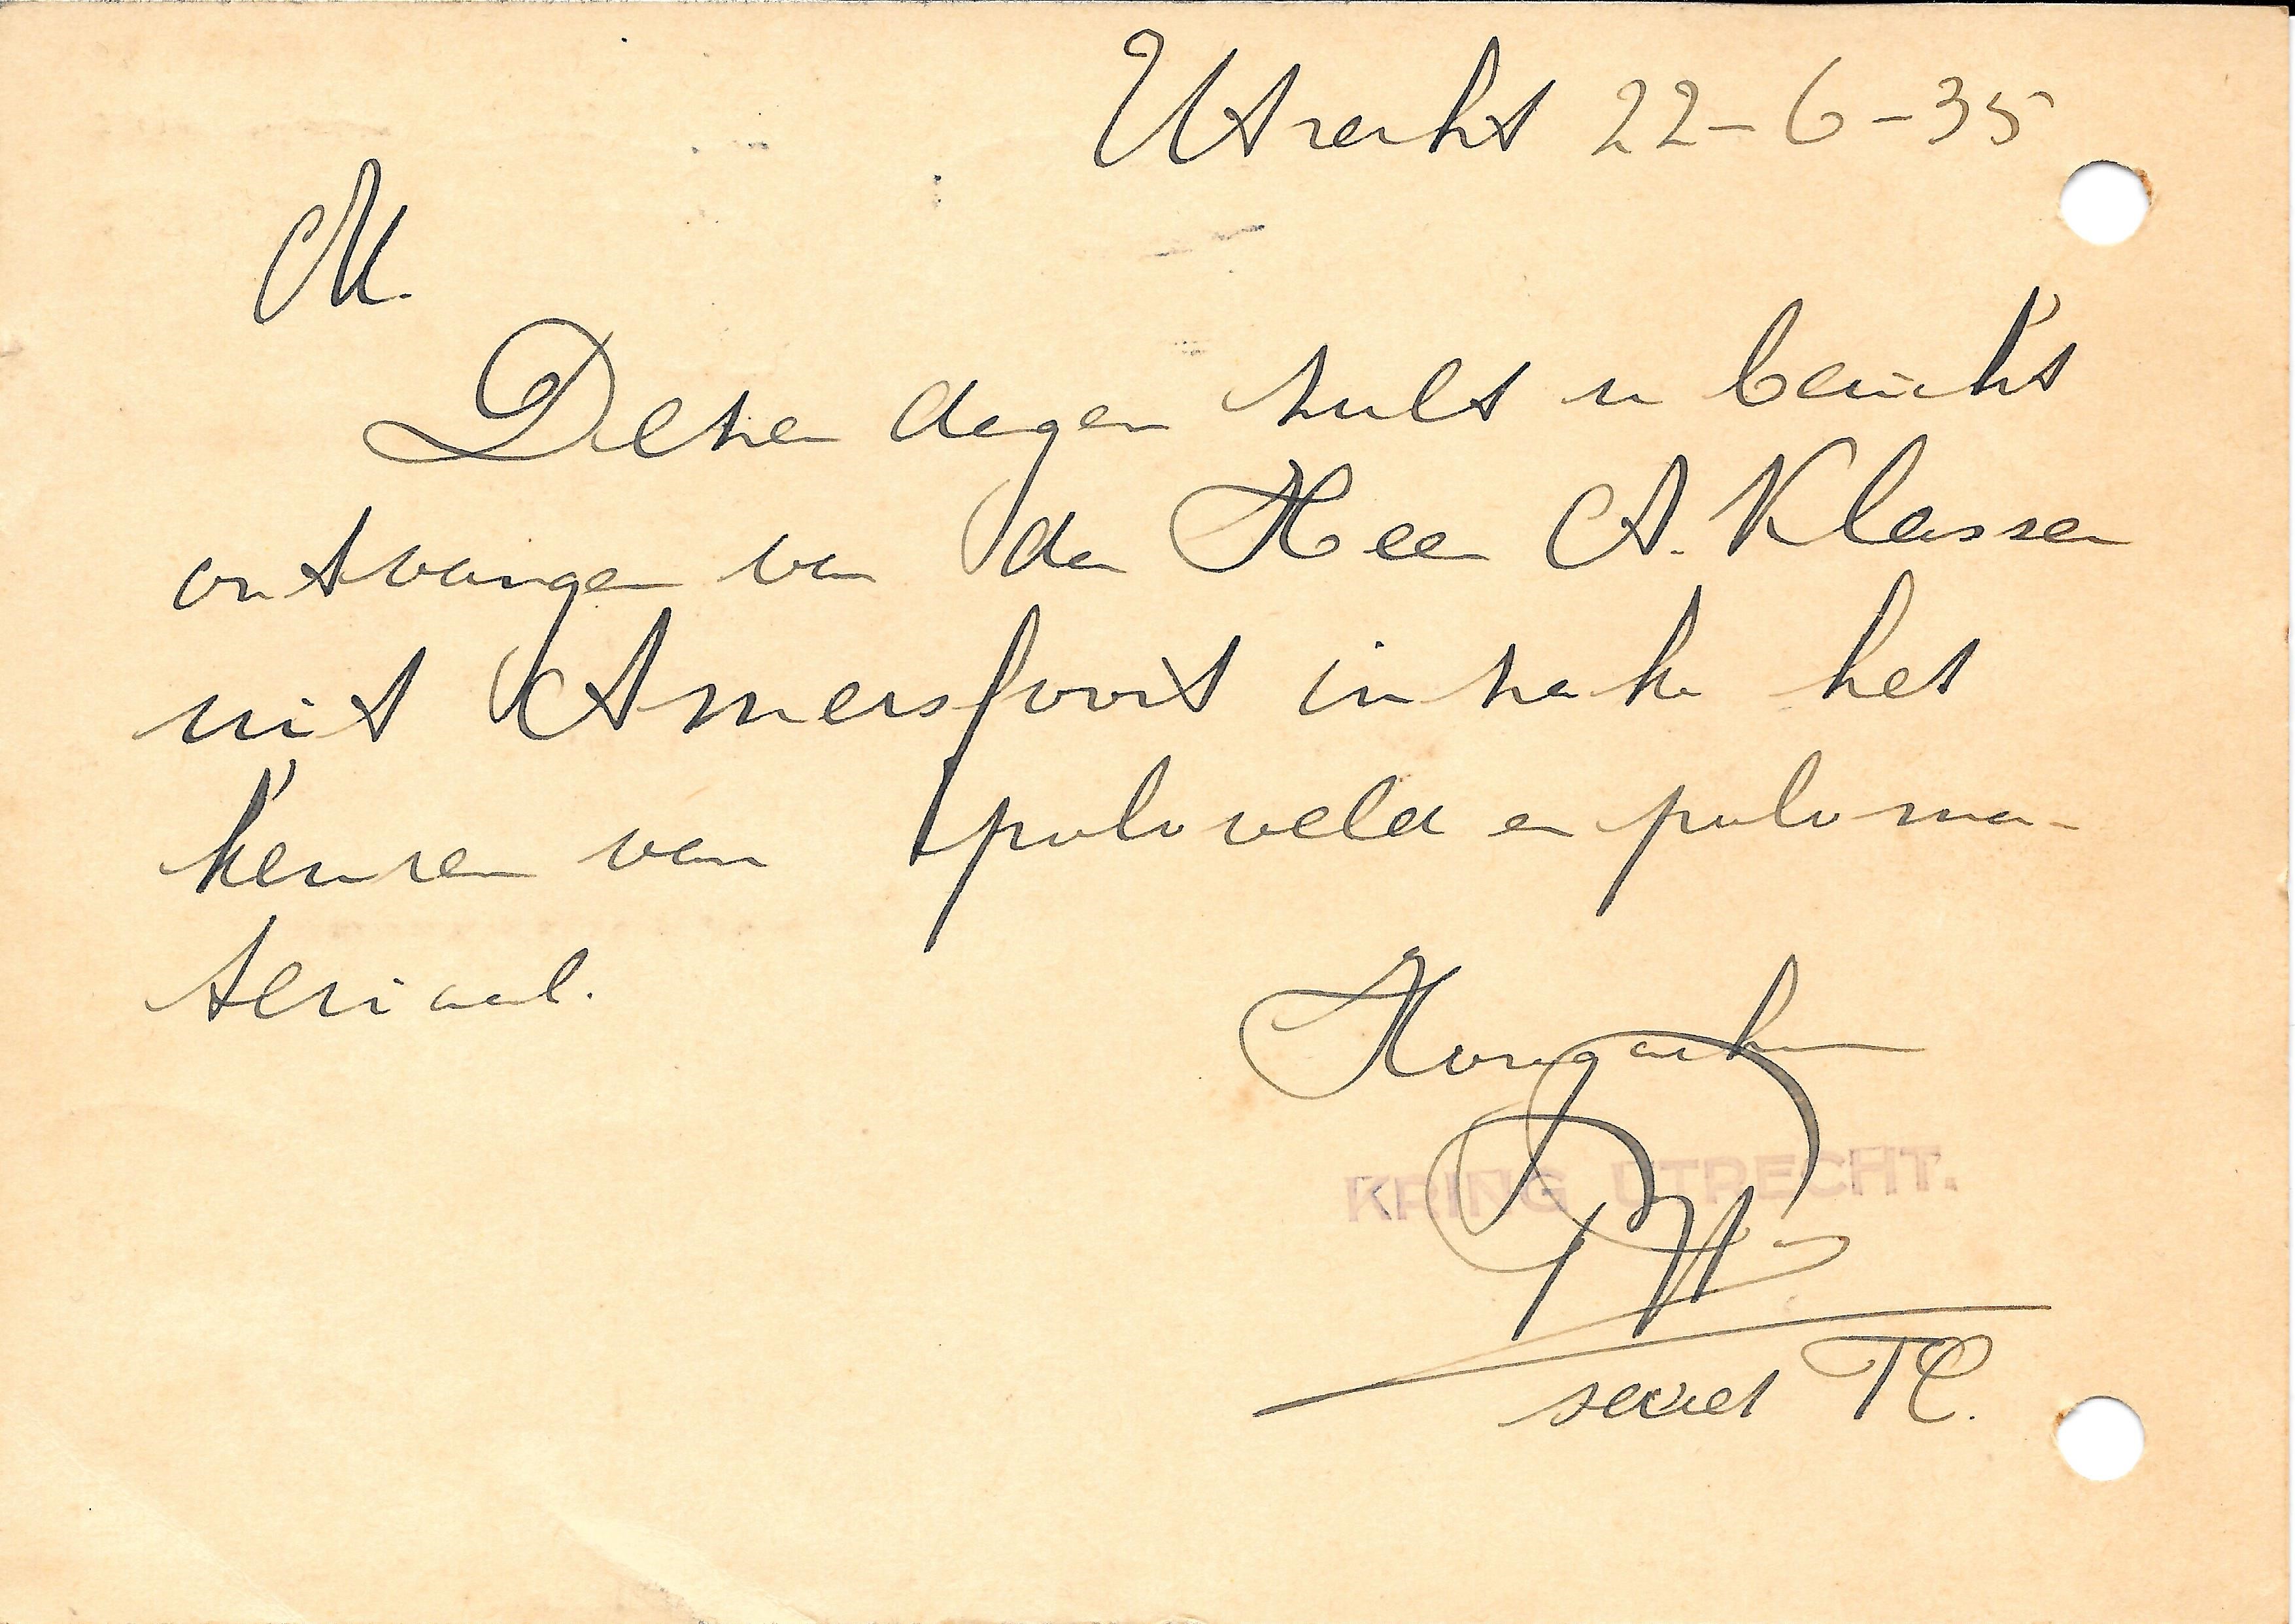 Utrecht 22-6-35
M.
Dezer dagen zult u bericht
ontvangen van den Heer A. Klassen
uit Amersfoort inzake het
keuren van poloveld en poloma-
teriaal.
Hoogachtend
KRING UTRECHT.
secret TC.